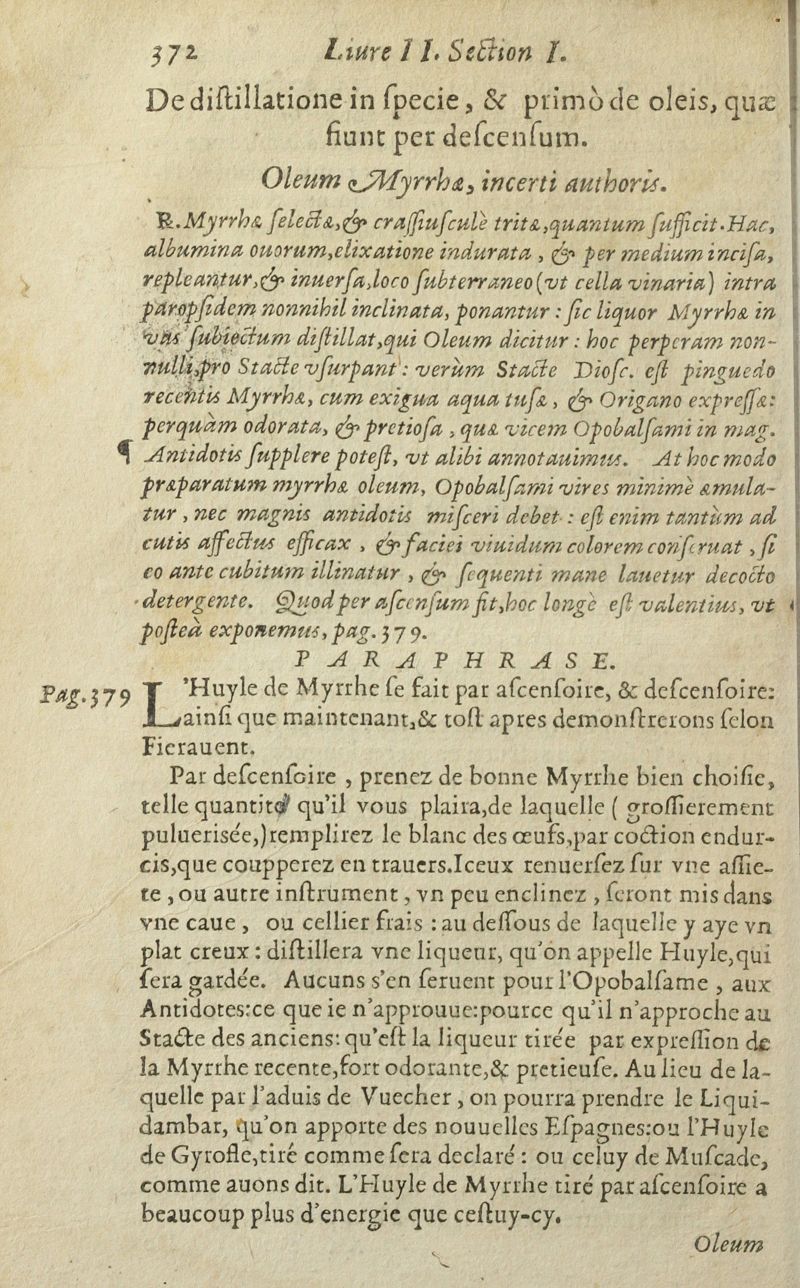 372 Liure II. Section I.
De distillatione in specie, & primò de oleis, quæ
fiunt per descensum.
Oleum Myrrhæ, incerti authoris.
℞. Myrrhæ selectæ, & crassiusculè tritæ, quantum sufficit. Hac,
albumina ouorum, elixatione indurata, & per medium incisa,
repleantur, & inuersa, loco subterraneo (vt cella vinaria) intra
paropsidem nonnihil inclinata, ponantur: sic liquor Myrrhæ in
vas subiectum distillat, qui Oleum dicitur: hoc perperam non-
nulli, pro Stacte vsurpant: verùm Stacte Diosc. est pinguedo
recentis Myrrhæ, cum exigua aqua tusæ, & Origano expressæ:
perquàm odorata, & pretiosa, quæ vicem Opobalsami in mag.
¶ Antidotis supplere potest, vt alibi annotauimus. At hoc modo
præparatum myrrhæ oleum, Opobalsami vires minimè æmula-
tur, nec magnis antidotis misceri debet: est enim tantùm ad
cutis affectus efficax, & faciei viuidum colorem conseruat, si
eo ante cubitum illinatur, & sequenti mane lauetur decocto
detergente. Quod per ascensum fit, hoc longè est valentius, vt
posteà exponemus, pag. 379.
PARAPHRASE.
Pag. 379 L'Huyle de Myrrhe se fait par ascensoire, & descensoire:
ainsi que maintenant, & tost apres demonstrerons selon
Fierauent.
Par descensoire, prenez de bonne Myrrhe bien choisie,
telle quantité qu'il vous plaira, de laquelle (grossierement
puluerisée,) remplirez le blanc des œufs, par coction endur-
cis, que coupperez en trauers. Iceux renuersez sur vne assie-
te, ou autre instrument, vn peu enclinez, seront mis dans
vne caue, ou cellier frais: au dessous de laquelle y aye vn
plat creux: distillera vne liqueur, qu'on appelle Huyle, qui
sera gardée. Aucuns s'en seruent pour l'Opobalsame, aux
Antidotes: ce que ie n'approuue: pource qu'il n'approche au
Stacte des anciens: qu'est la liqueur tirée par expression de
la Myrrhe recente, fort odorante, & pretieuse. Au lieu de la-
quelle par l'aduis de Vuecher, on pourra prendre le Liqui-
dambar, qu'on apporte des nouuelles Espagnes: ou l'Huyle
de Gyrofle, tiré comme sera declaré: ou celuy de Muscade,
comme auons dit. L'Huyle de Myrrhe tiré par ascensoire a
beaucoup plus d'energie que cestuy-cy.
Oleum